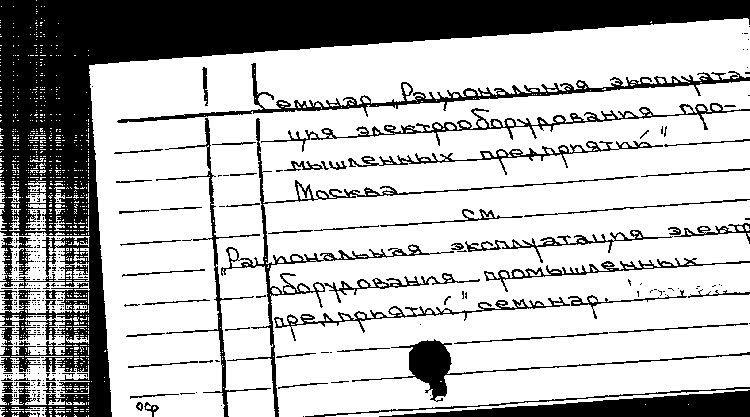 Семинар „Рациональная эксплуата-
ция электрооборудования про-
мышленных предприятий".
Москва.
см.
„Рациональная эксплуатация электро
оборудования промышленных
предприятий", семинар.